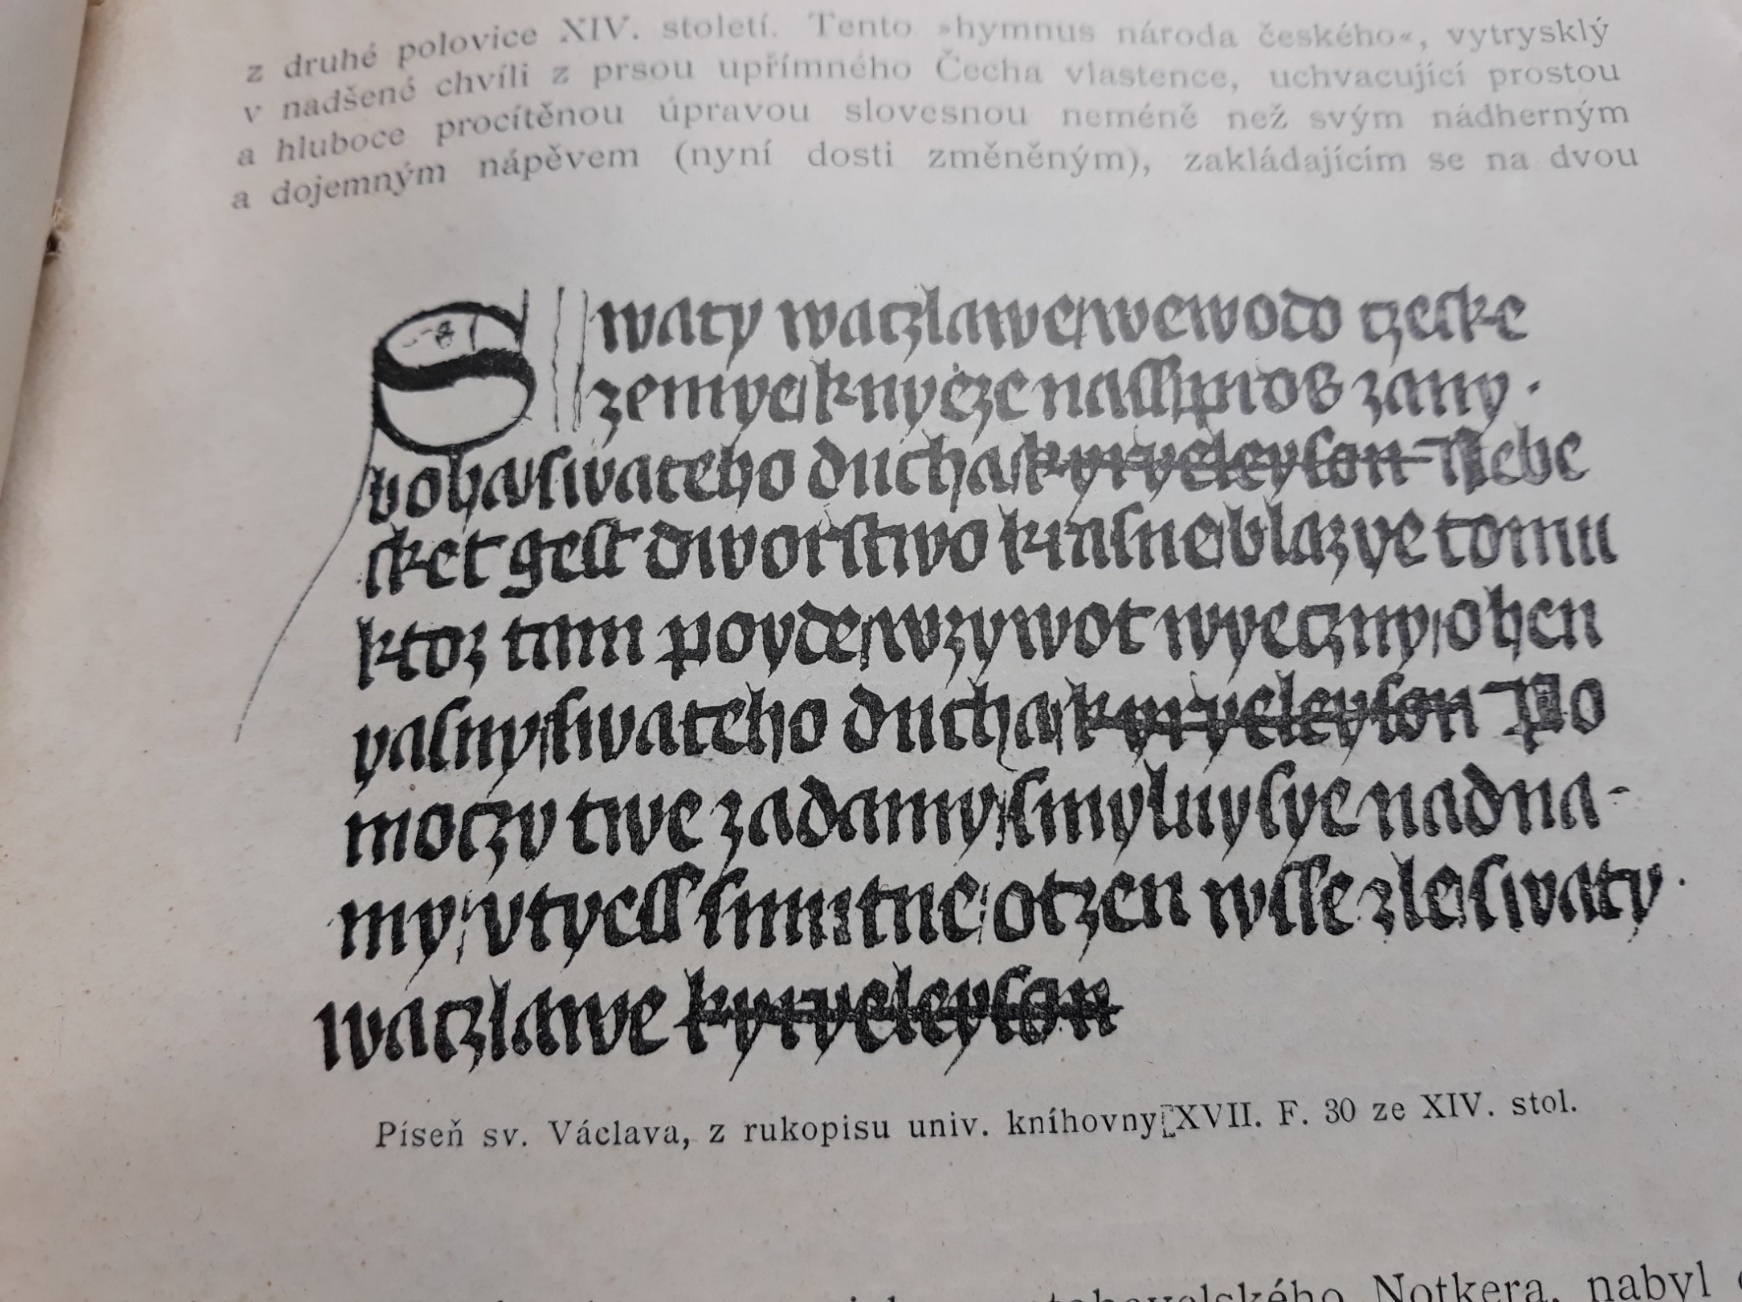 z druhé polovice XIV. století. Tento »hymnus národa českého«, vytrysklý
v nadšené chvíli z prsou upřímného Čecha vlastence, uchvacující prostou
a hluboce procítěnou úpravou slovesnou neméně než svým nádherným
a dojemným nápěvem (nyní dosti změněným), zakládajícím se na dvou
Swaty waczlawe wewodo czeske
zemye knyeze nass pros zany.
boha swateho ducha kyryeleyson Nebe
sket gest dworstwo krasne blaze tomu
ktoz tam poyde wzywot wyeczny ohen
yasny swateho ducha kyryeleyson Po
moczy twe zadamy smyluy sye nad na-
my vtyess smutne otzen wsse zle swaty.
waczlawe kyryeleyson
Píseň sv. Václava, z rukopisu univ. kníhovny XVII. F. 30 ze XIV. stol.
Notkera, nabyl